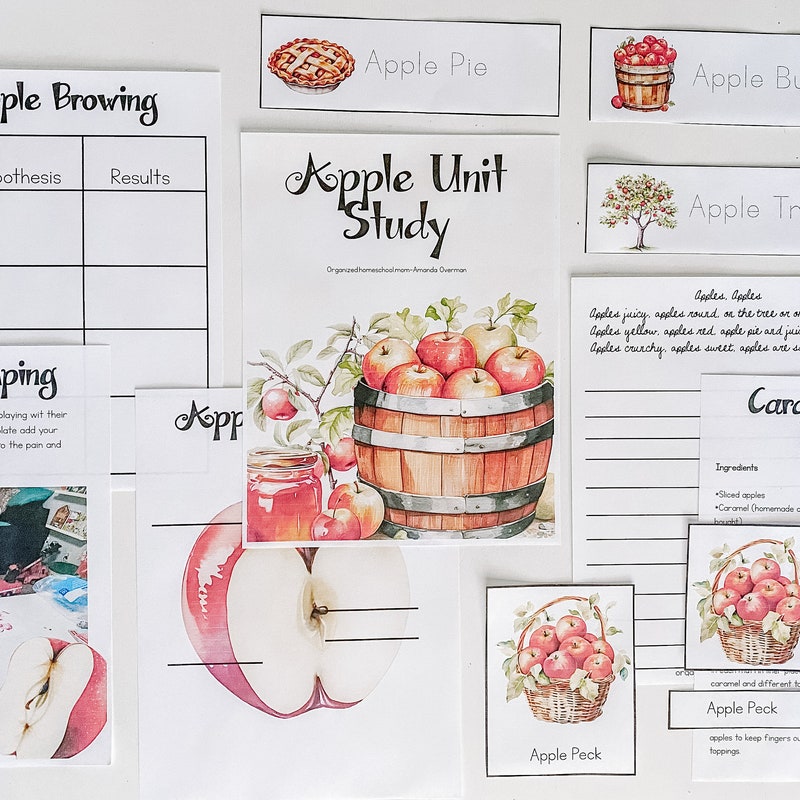 Apple Pie
Apple
ple Browing
Results
Apple Unit
Study
Organized.homeschool.mom-Amanda Overman
Apple
Apples, Apples
Apples juicy, apples round, on the tree or on
Apples yellow, apples red, apple pie and juic
Apples crunchy, apples sweet, apples are
ping
playing wit their
plate add your
to the pain and
Ap
Ingredients
•Sliced apples
•Caramel (homemade
bought)
caramel and different
Apple Peck
apples to keep fingers
toppings.
Apple Peck